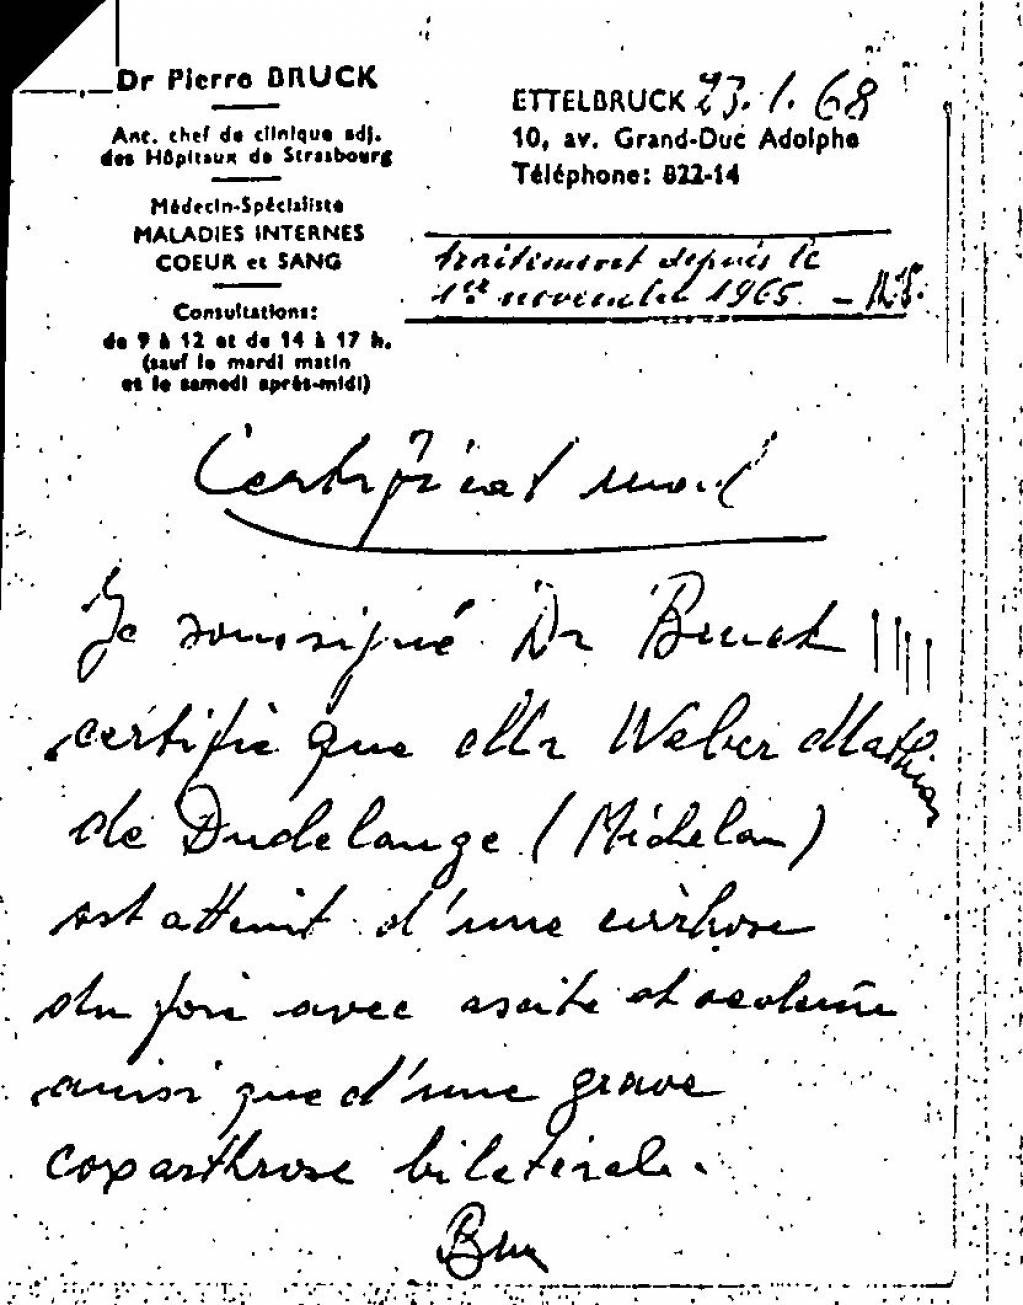 Dr Pierre BRUCK
Anc. chef de clinique adj.
des Hôpitaux de Strasbourg
Médecin-Spécialiste
MALADIES INTERNES
COEUR et SANG
Consultations:
de 9 à 12 et de 14 à 17 h.
(sauf le mardi matin
et le samedi après-midi)
ETTELBRUCK 23.1.68
10, av. Grand-Duc Adolphe
Téléphone: 822-14
traitement depuis le
1er novembre 1965. —
Certificat med
Je soussigné Dr Bruck
certifie que Mr Weber Mathias
de Dudelange (Michelau)
est atteint d'une cirrhose
du foie avec ascite et oedeme
ainsi que d'une grave
coxarthrose bilatérale.